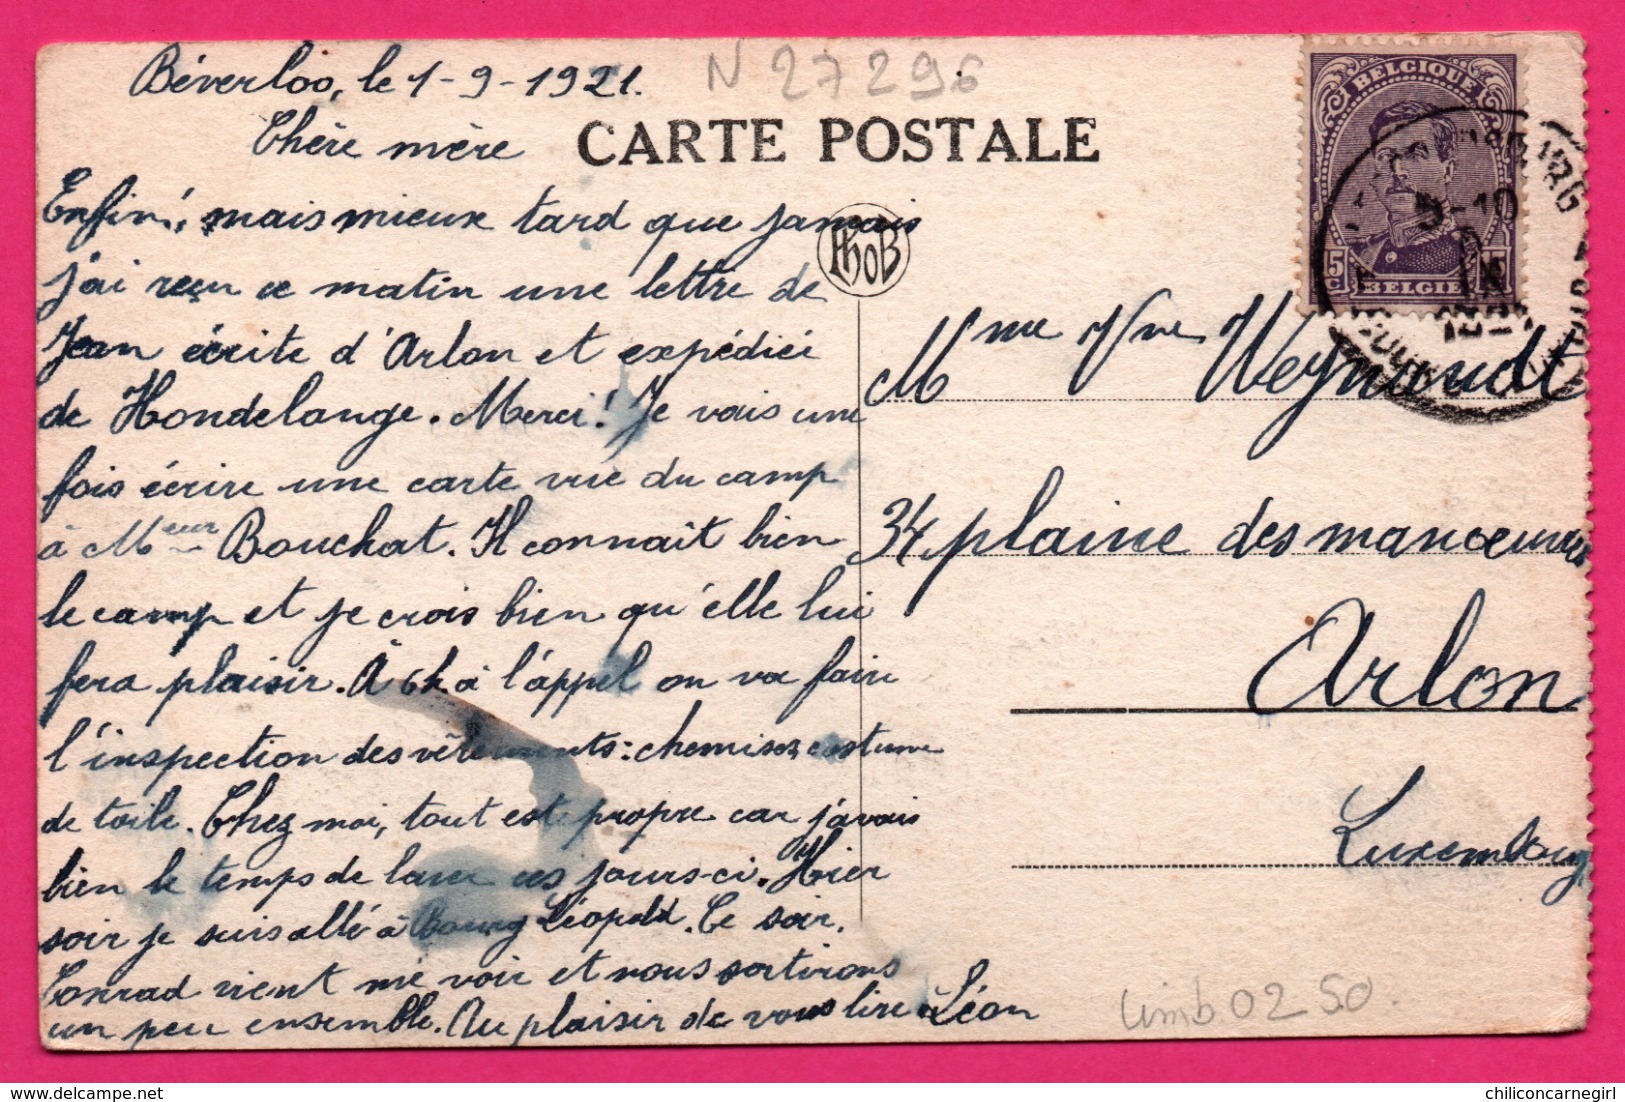 Béverloo, le 1-9-1921.
N 27296
Chère mère
CARTE POSTALE
Enfin, mais mieux tard que jamais
j'ai reçu ce matin une lettre de
Jean écrite d'Arlon et expédiée
de Hondelange. Merci! Je vais une
fois écrire une carte vue du camp
à Mieur Bouchat. Il connaît bien
le camp et je crois bien qu'elle lui
fera plaisir. À 6h. à l'appel on va faire
l'inspection des vêtements: chemises, costume
de toile. Chez moi, tout est propre car j'avais
bien le temps de laver ces jours-ci. Hier
soir je suis allé à Bourg Léopold. Ce soir.
Conrad vient me voir et nous sortirons
un peu ensemble. Au plaisir de vous lire Léon
PhoB
BELGIQUE
15 c 15 c
BELGIË
5-10
IX
1921
Mme Vve Weynandt
34 plaine des manœuvres
Arlon
Luxembourg
Limb 02 50.
chiliconcarnegirl / delcampe.net